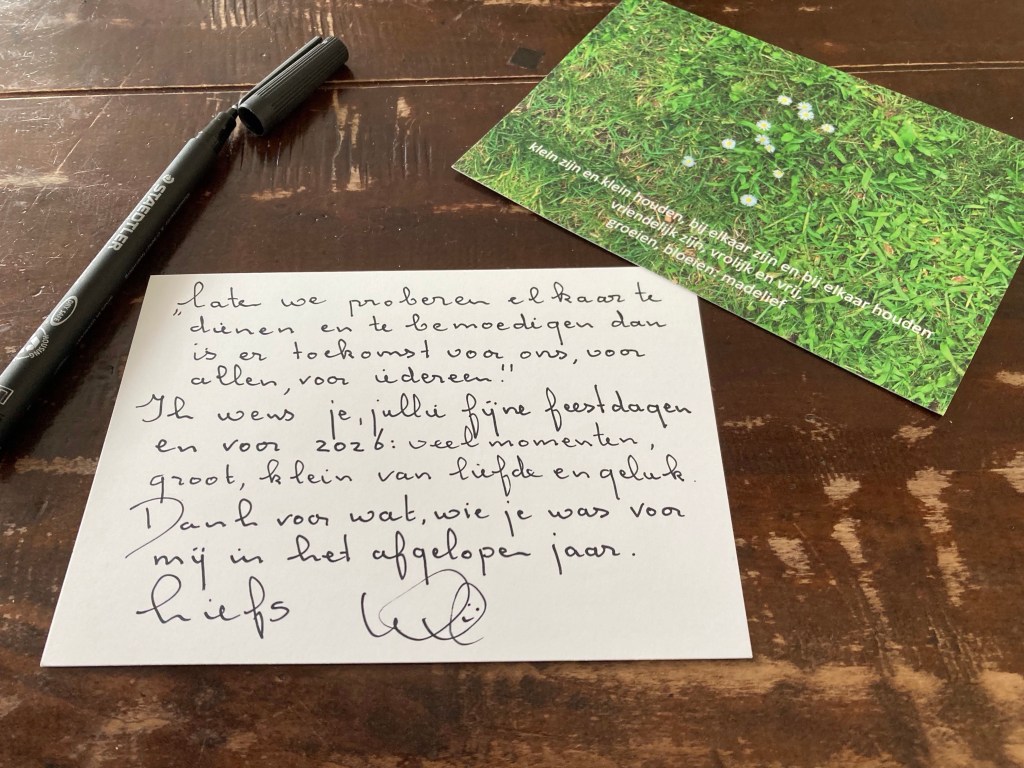 STAEDTLER
klein zijn en klein houden, bij elkaar zijn en bij elkaar houden,
vriendelijk zijn, vrolijk en vrij,
groeien, bloeien: madelief
„laten we proberen elkaar te
dienen en te bemoedigen dan
is er toekomst voor ons, voor
allen, voor iedereen!"
Ik wens je, jullie fijne feestdagen
en voor 2026: veel momenten,
groot, klein van liefde en geluk.
Dank voor wat, wie je was voor
mij in het afgelopen jaar.
Liefs